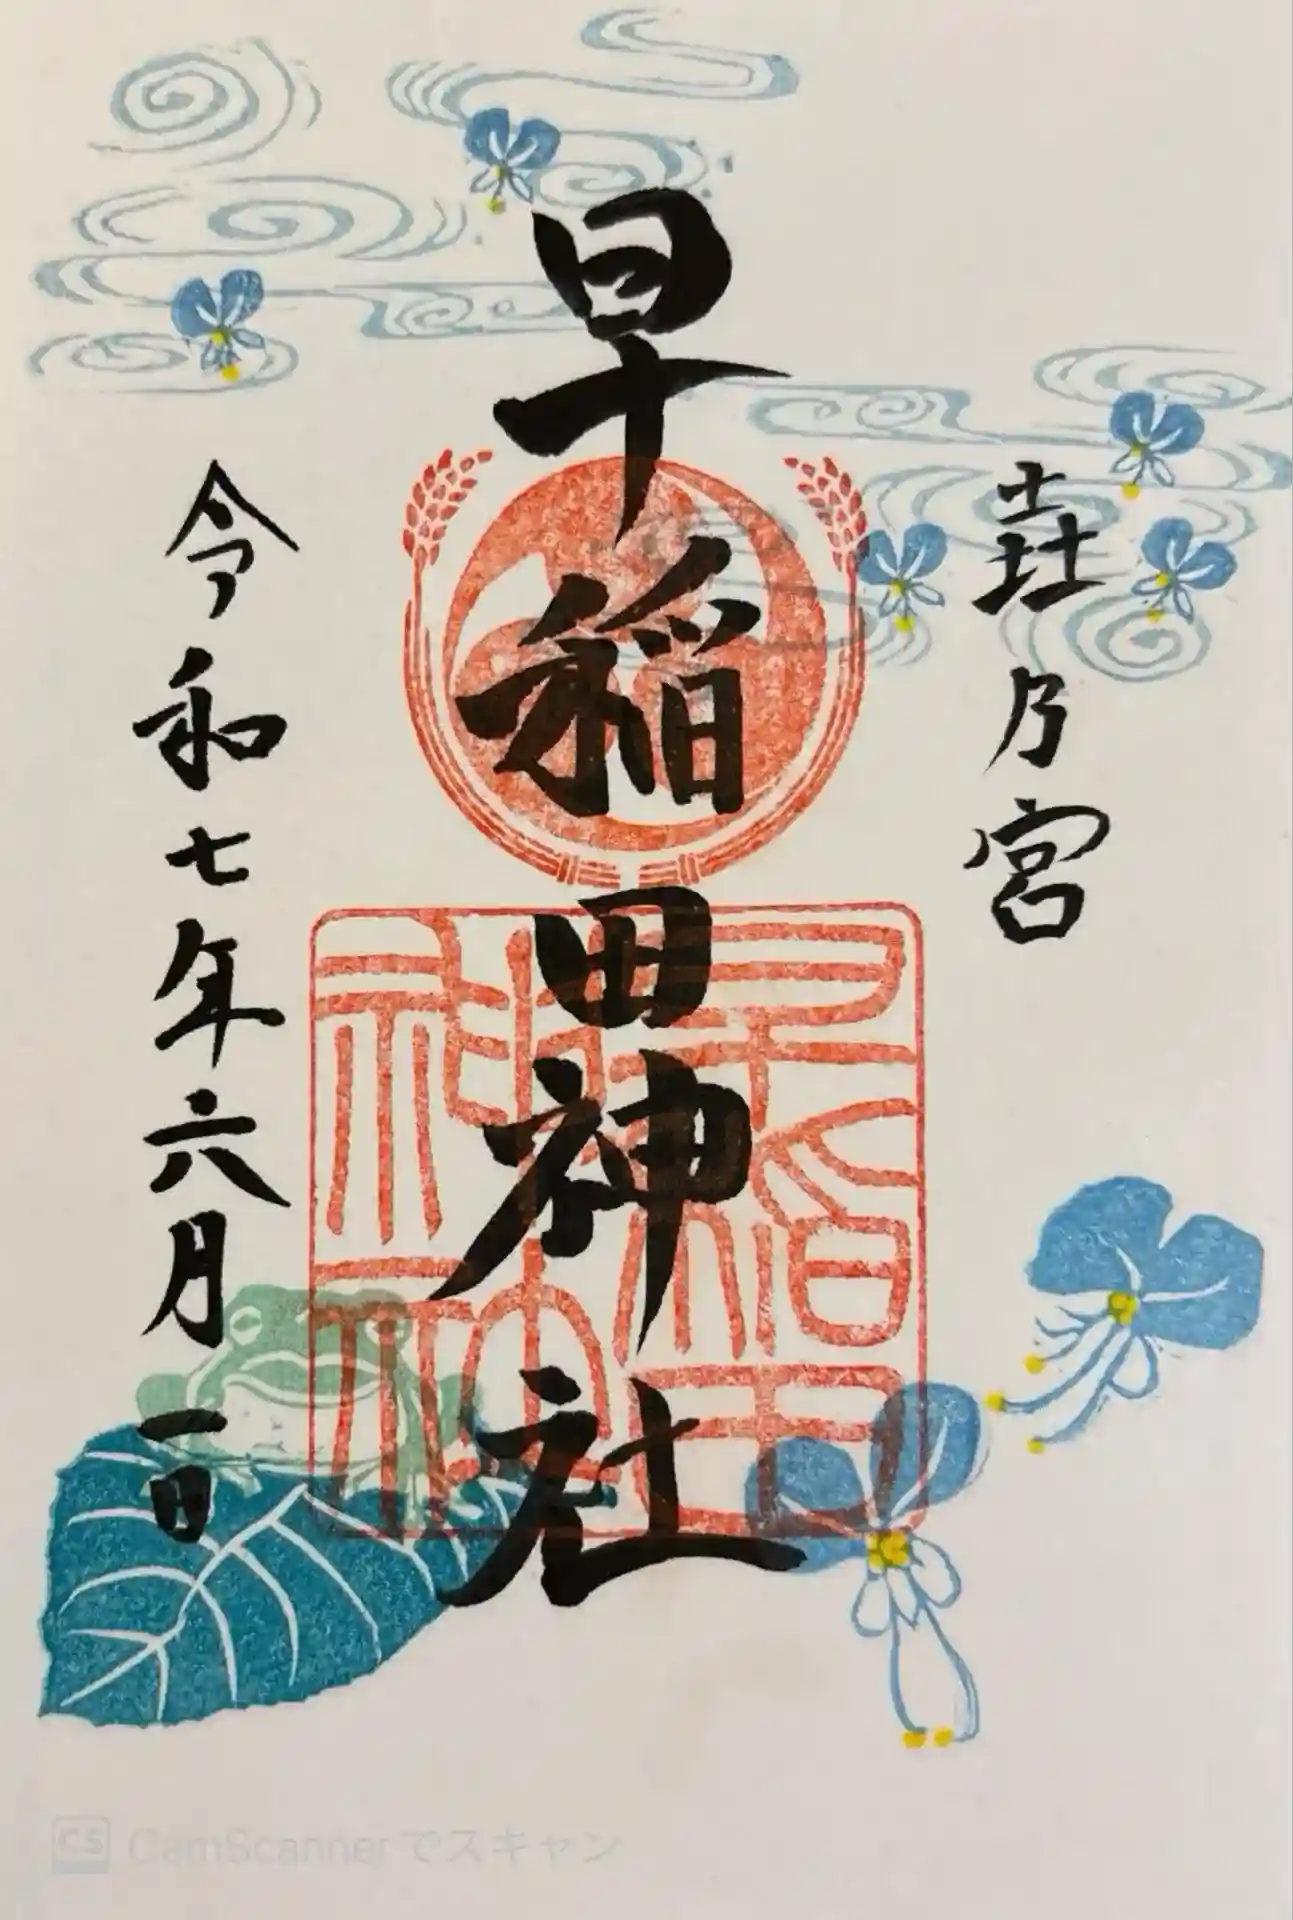 乃宮
早稲田神社
早稲田神社
令和七年六月一日
CS CamScannerでスキャン